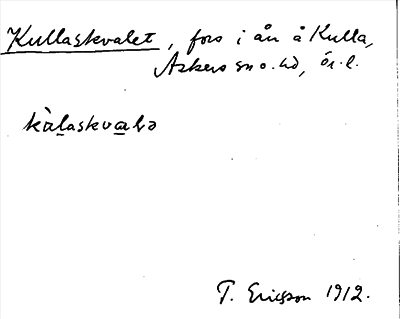 Kullaskvalet, fors i ån å Kulla,
Askers sn o. hd, ör. l.
kùlaskvalə
T. Ericsson 1912.